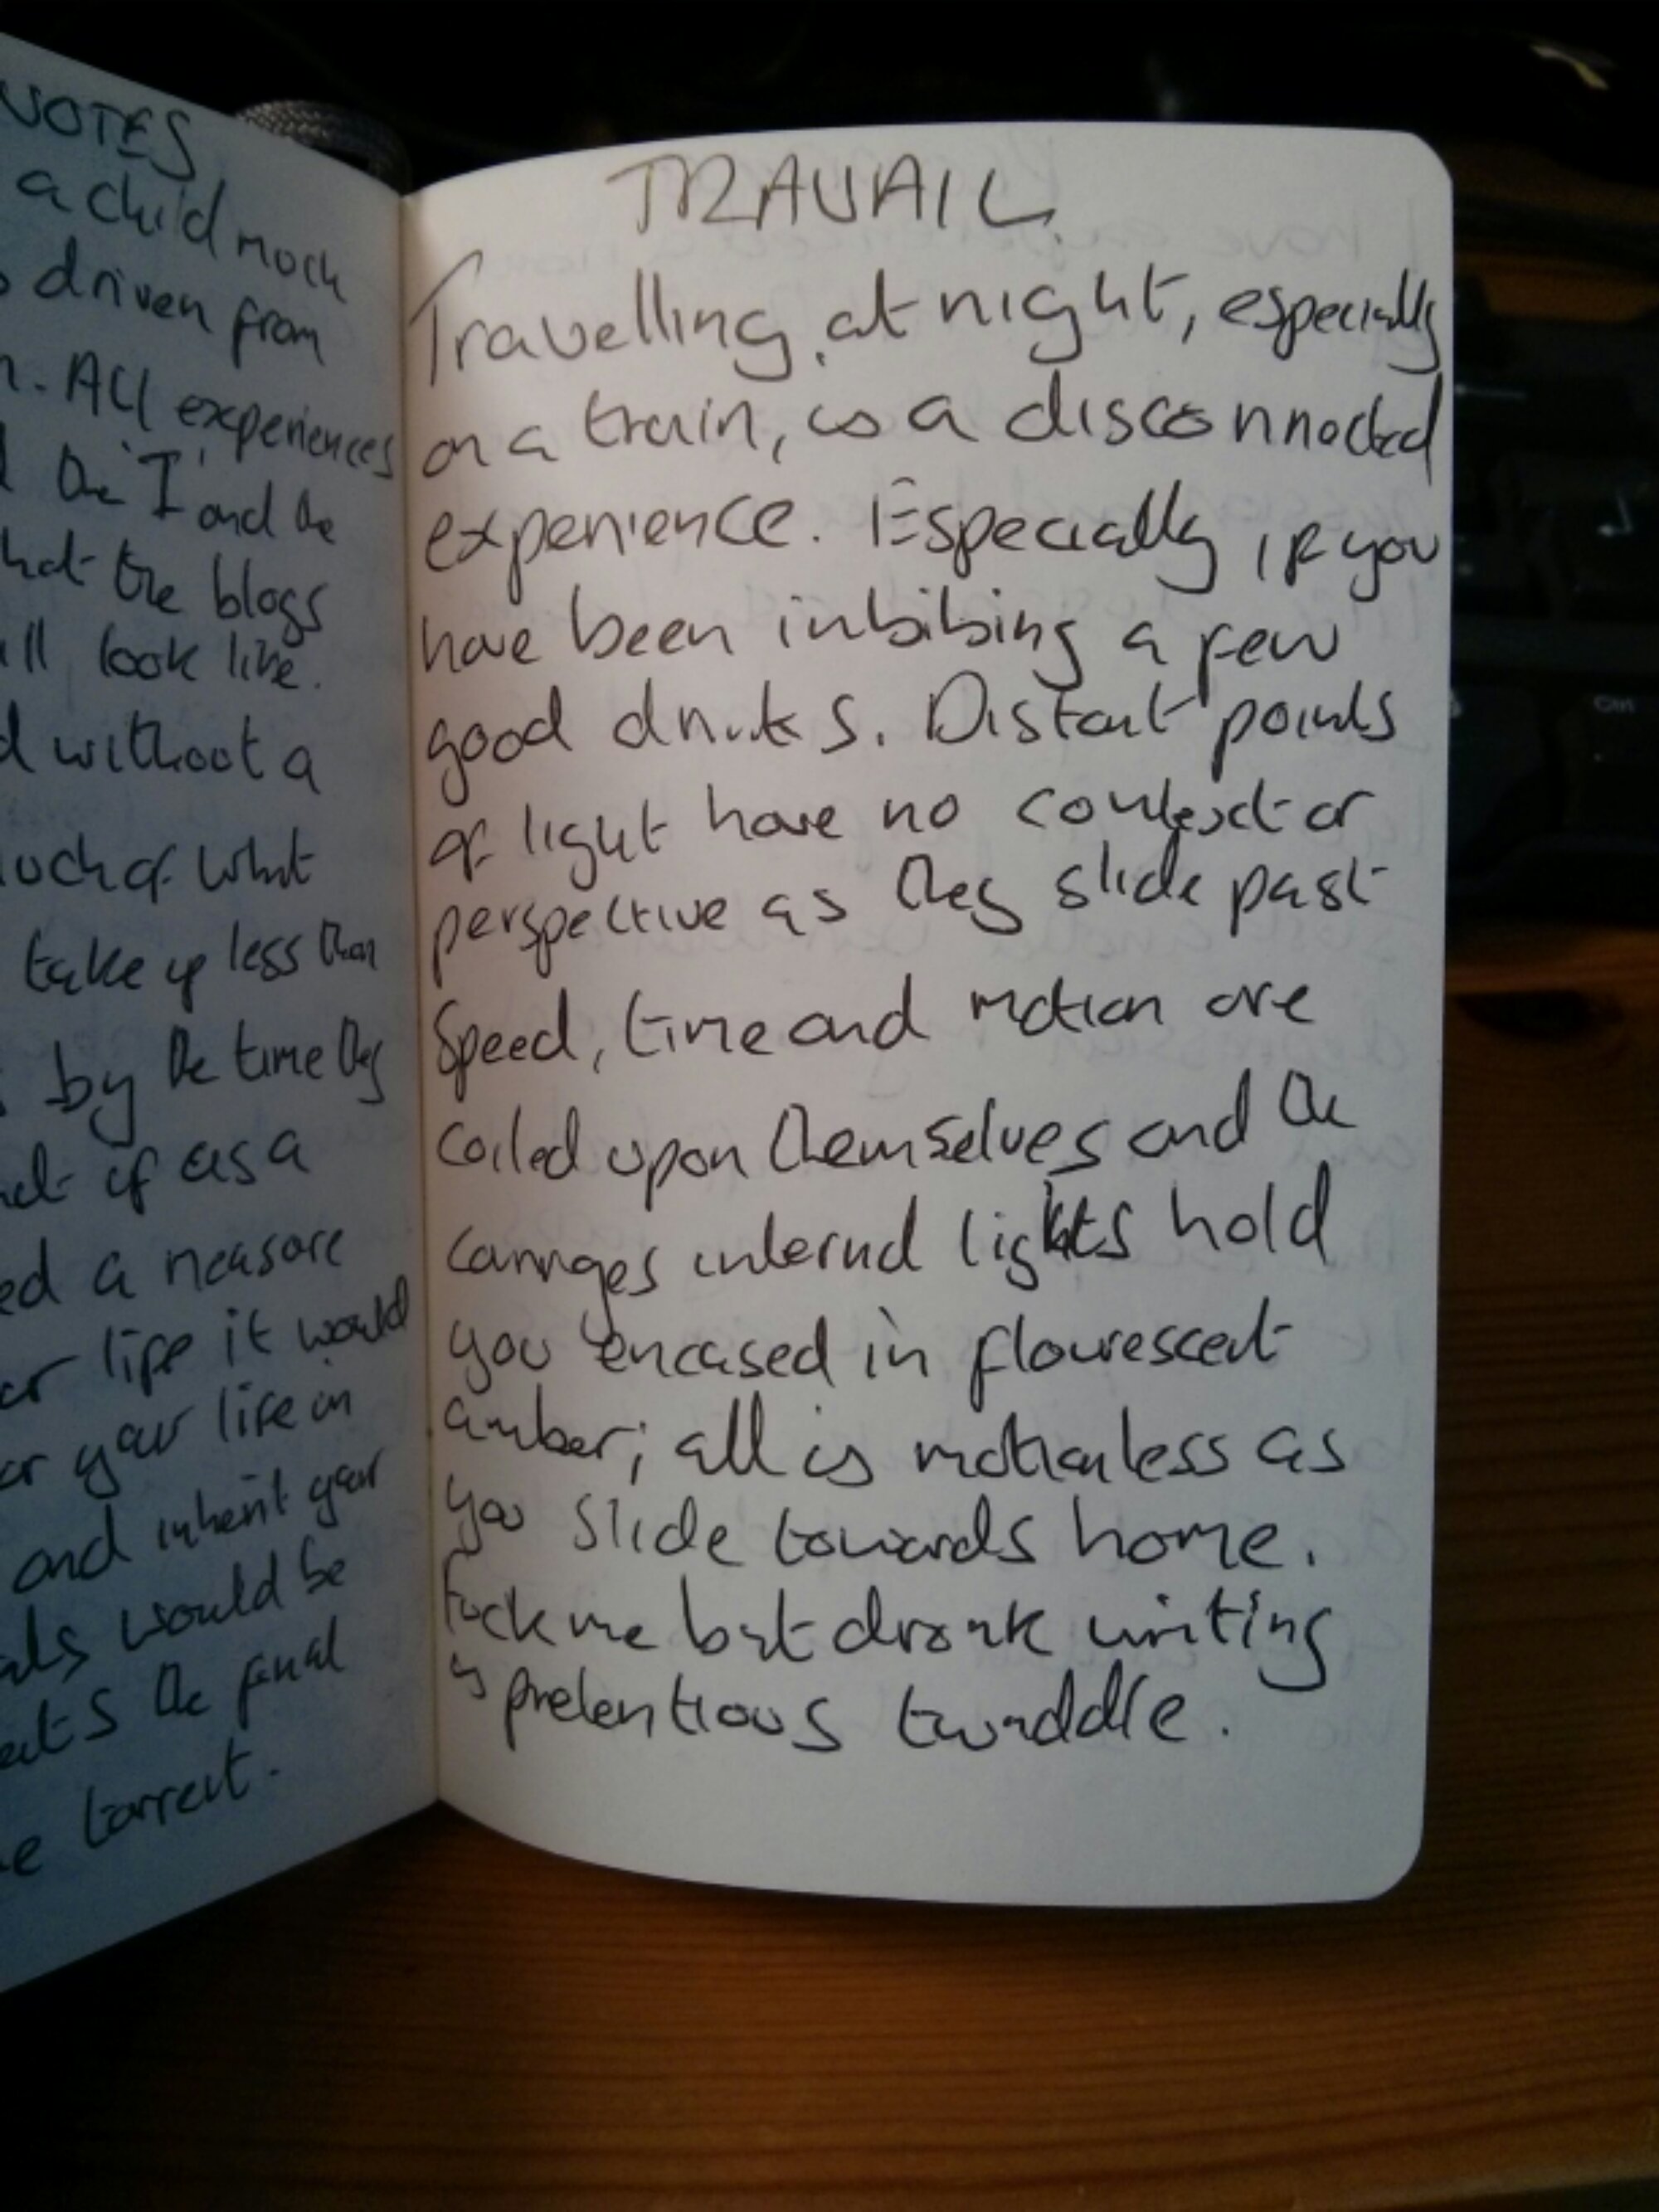 NOTES
a child mock
driven from
. All experiences
the 'I' and the
the blogs
all look like.
without a
of what
take up less than
by the time they
if as a
a measure
life it would
or your life in
and inherit your
would be
the final
torrent.
TRAVAIL
Travelling at night, especially
on a train, is a disconnected
experience. Especially if you
have been inbibing a few
good drinks. Distant points
of light have no context or
perspective as they slide past
Speed, time and motion are
coiled upon themselves and the
carriages internal lights hold
you encased in flourescent
amber; all is motionless as
you slide towards home.
Fuck me but drunk writing
is pretentious twaddle.